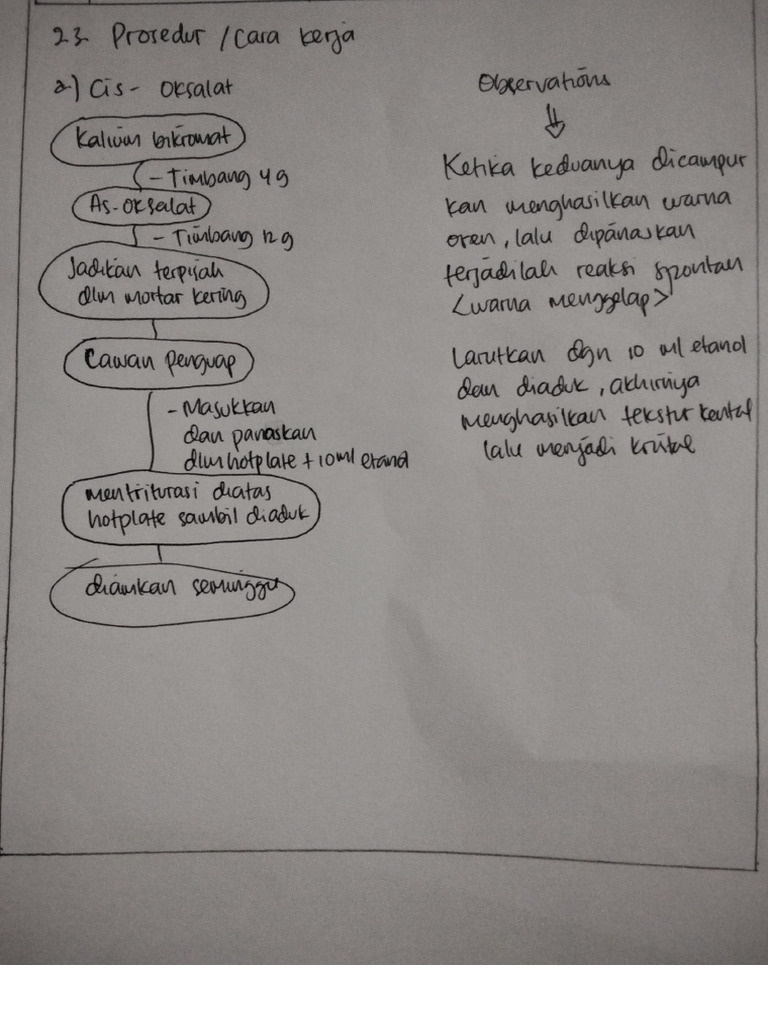 2.3. Prosedur / Cara kerja
a) Cis - Oksalat
Kalium bikromat
- Timbang 4 g
As-oksalat
- Timbang 12 g
Jadikan terpisah
dlm mortar kering
Cawan penguap
- Masukkan
dan panaskan
dlm hotplate + 10 ml etanol
mentriturasi diatas
hotplate sambil diaduk
diamkan seminggu
Observations
Ketika keduanya dicampur
kan menghasilkan warna
oren, lalu dipanaskan
terjadilah reaksi spontan
<warna menggelap>
Larutkan dgn 10 ml etanol
dan diaduk, akhirnya
menghasilkan tekstur kental
lalu menjadi kristal